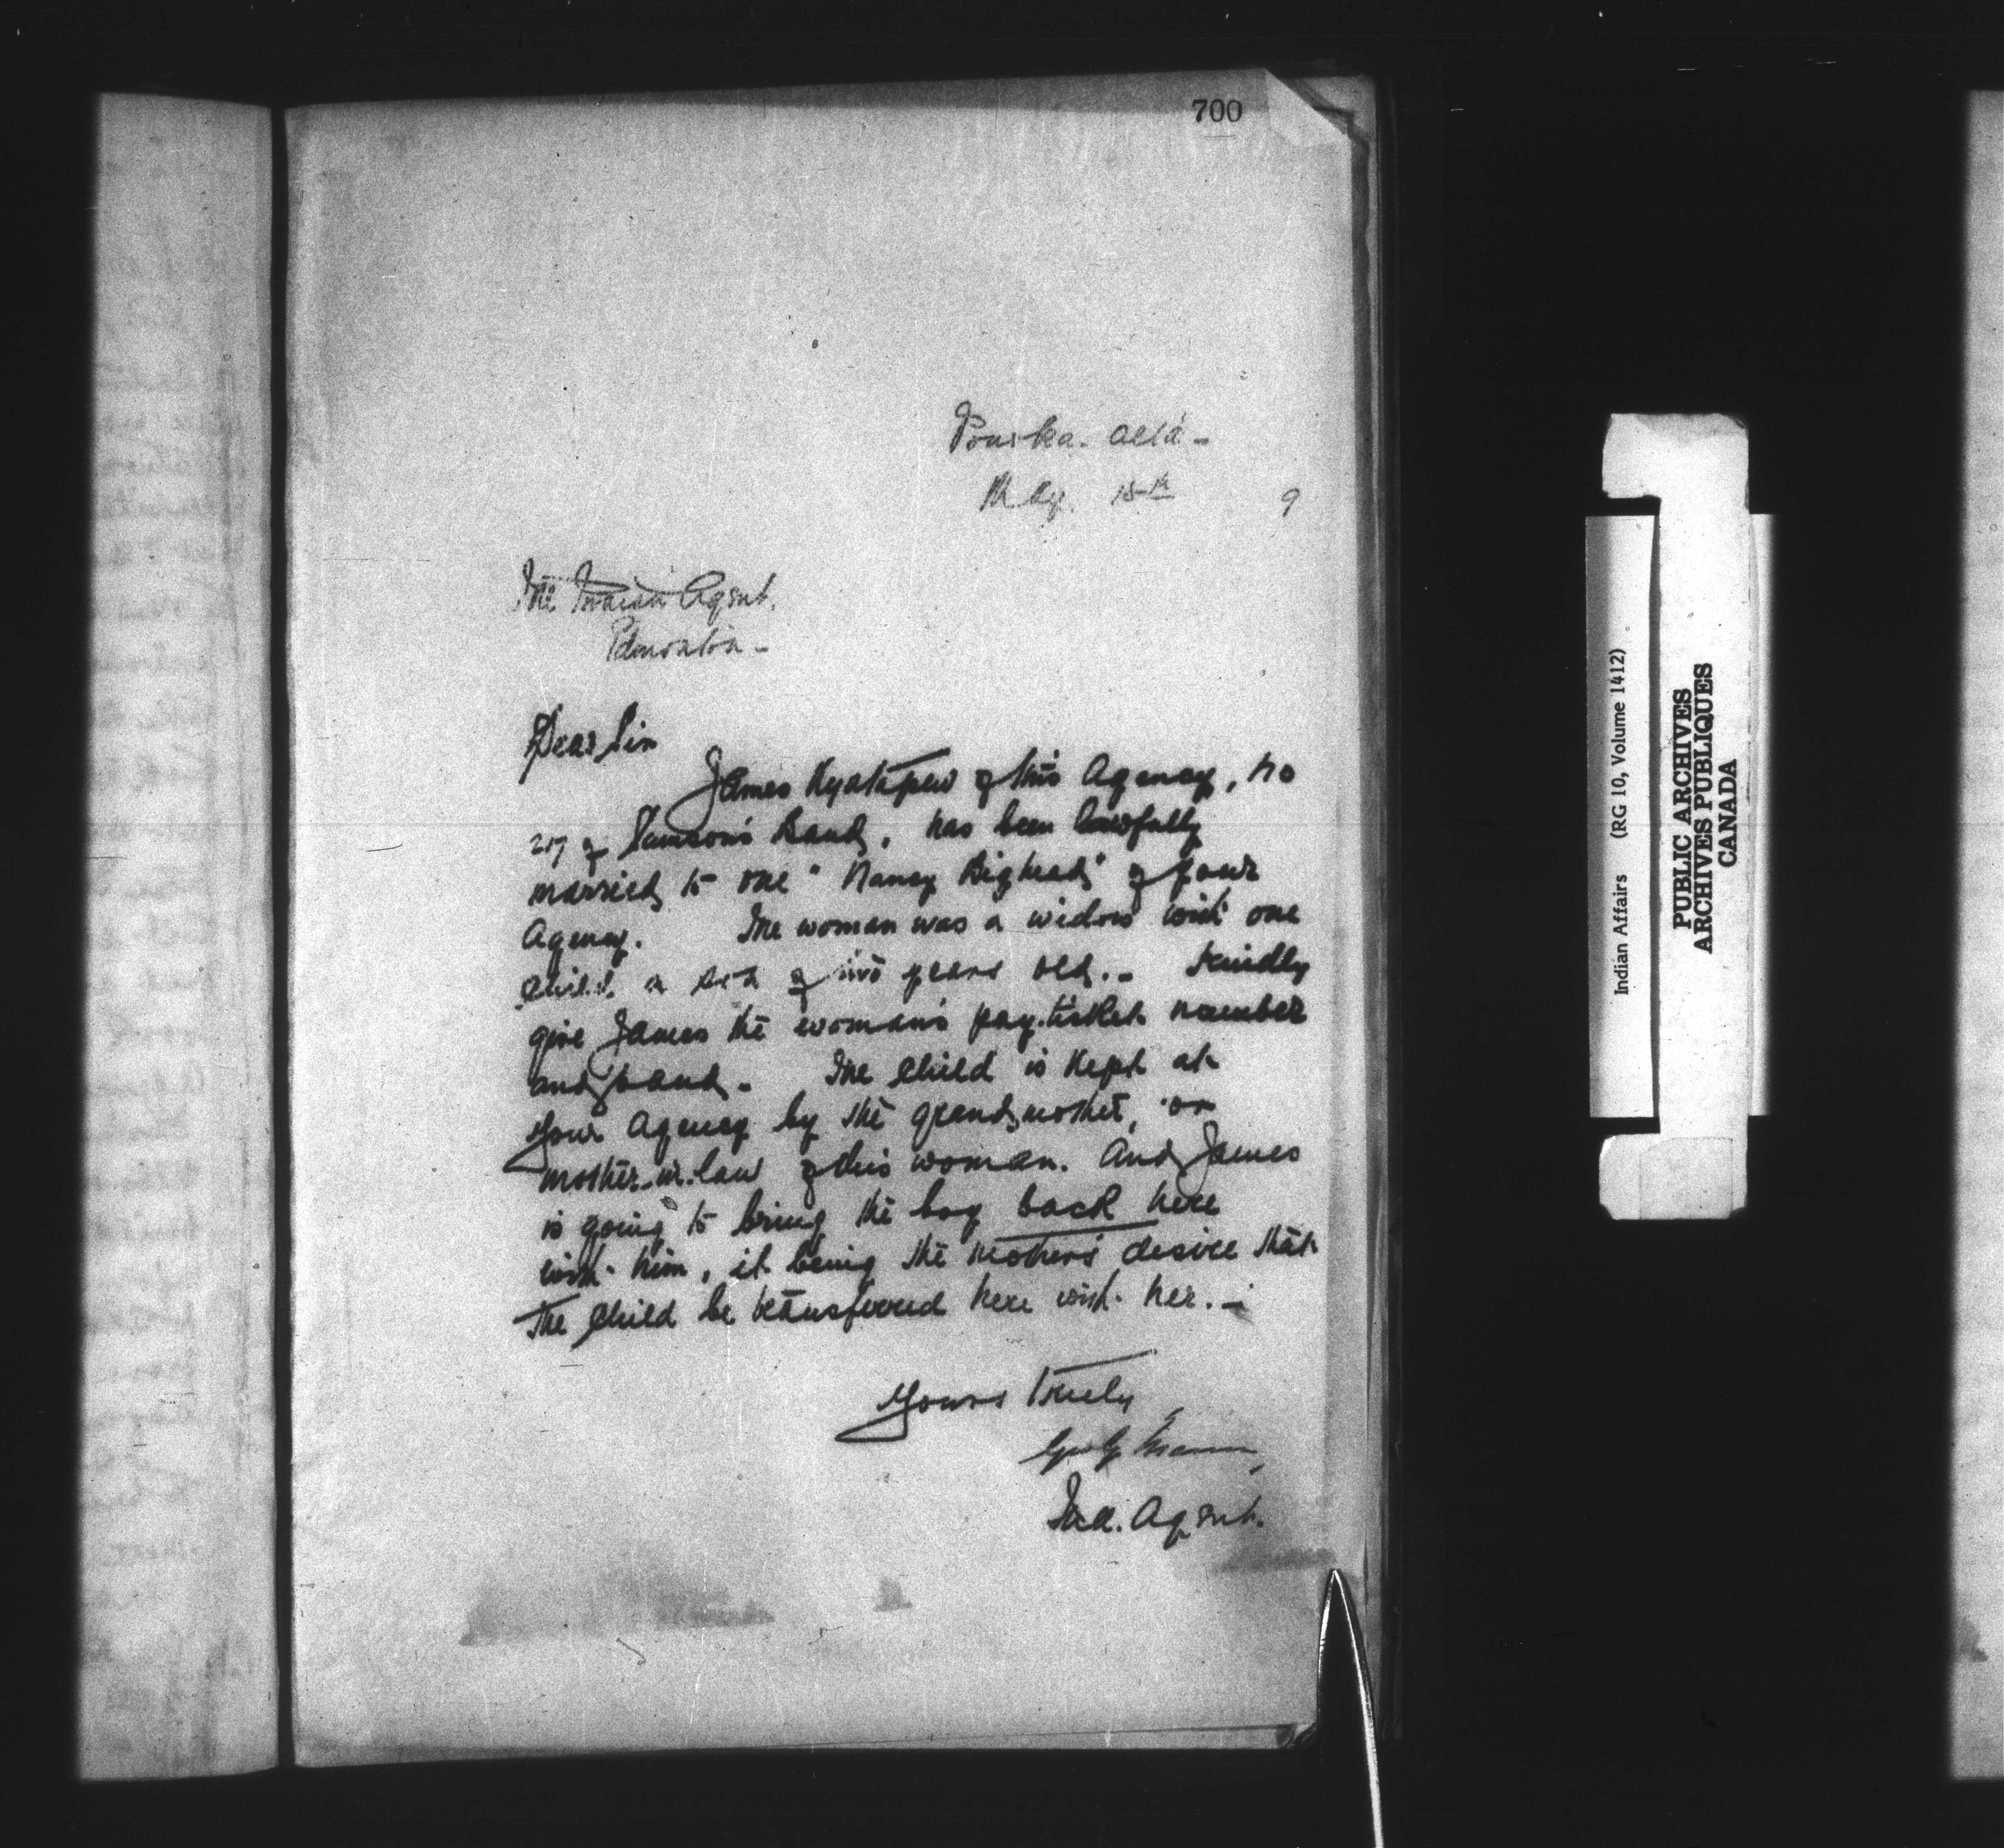 700
Ponoka. Alta -
May. 15th 9
The Indian Agent.
Edmonton -
Dear Sir
James Kyatapew of this Agency, No
217 of Samson's Band, has been lawfully
married to one "Nancy Bighead" of your
Agency. The woman was a widow with one
child a son of two years old. - Kindly
give James the woman's pay-ticket number
and band - The child is kept at
your Agency by the grandmother, or
mother-in-law of this woman. And James
is going to bring the boy back here
with him, it being the mother's desire that
the child be transferred here with her. -
Yours Truly
Geo G Mann,
Ind. Agent.
Indian Affairs (RG 10, Volume 1412)
PUBLIC ARCHIVES
ARCHIVES PUBLIQUES
CANADA